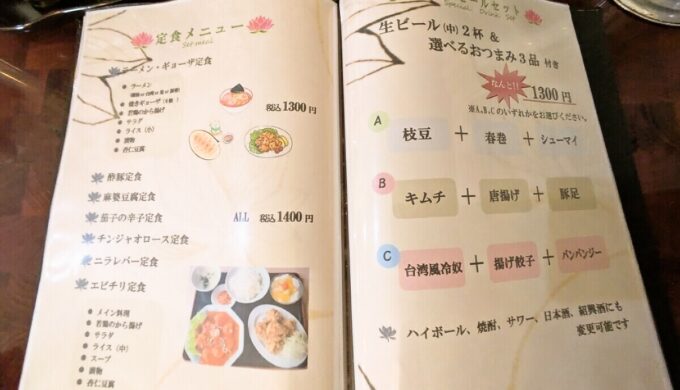 定食メニュー
Set meal
ラーメン・ギョーザ定食
ラーメン
焼きギョーザ
若鶏のから揚げ
サラダ
ライス（小）
漬物
杏仁豆腐
税込 1300円
酢豚定食
麻婆豆腐定食
茄子の辛子定食
ALL 税込 1400円
チンジャオロース定食
ニラレバー定食
エビチリ定食
メイン料理
若鶏のから揚げ
サラダ
ライス（中）
スープ
漬物
杏仁豆腐
ルセット
Special Drink Set
生ビール(中) 2杯 &
選べるおつまみ 3品 付き
なんと!!
1300円
※A,B,Cのいずれかをお選びください。
A
枝豆 + 春巻 + シューマイ
B
キムチ + 唐揚げ + 豚足
C
台湾風冷奴 + 揚げ餃子 + バンバンジー
ハイボール、焼酎、サワー、日本酒、紹興酒にも
変更可能です